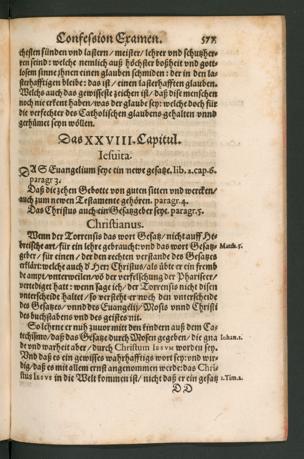 Confession Examen. 577.
chesten sünden vnd lastern / meister / lehrer vnd schutzher-
ren seind: welche nemlich auß höchster boßheit vnd gott-
losem sinne jhnen einen glauben schmiden: der in den la-
sterhafftigen bleibe: das ist / einen lasterhafften glauben.
Welchs auch das gewisseste zeichen ist / daß dise menschen
noch nie erkent haben / was der glaube sey: welche doch für
die verfechter des Catholischen glaubens gehalten vnnd
gerhümet seyn wöllen.
Das XXVIII. Capitul.
Iesuita.
DAS Euangelium seye ein newe gesatze. lib. 2. cap. 6.
paragr 3.
Daß die zehen Gebotte von guten sitten vnd wercken /
auch zum newen Testamente gehören. paragr. 4.
Das Christus auch ein Gesatzgeber seye. paragr. 5.
Christianus.
Wenn der Torrensis das wort Gesatz / nicht auff He-
breische art / für ein lehre gebraucht: vnd das wort Gesatz
geber / für einen / der den rechten verstande des Gesatzes
Matth. 5.
erkläret: welche auch d' Herr Christus / als übte er ein fremb
de ampt / vnterweilen / ob der verfelschung der Phariseer /
vertediget hatt: wenn sage ich / der Torrensis nicht disen
vnterscheide haltet / so verstehet er weder den vnterscheide
des Gesatzes / vnnd des Euangelij / Mosis vnnd Christi
des buchstabens vnd des geistes nitt.
So lehrne er nuh zuuor mitt den kindern auß dem Ca-
techismo / daß das Gesatze durch Mosen gegeben / die gna
Iohan. 1.
de vnd warheit aber / durch Christum IESVM worden sey.
Vnd daß es ein gewisses wahrhafftigs wort sey: vnd wir-
dig / daß es mitt allem ernst angenommen werde: das Chri-
stus IESVS in die Welt kommen ist / nicht daß er ein gesatz
1. Tim. 1.
D D